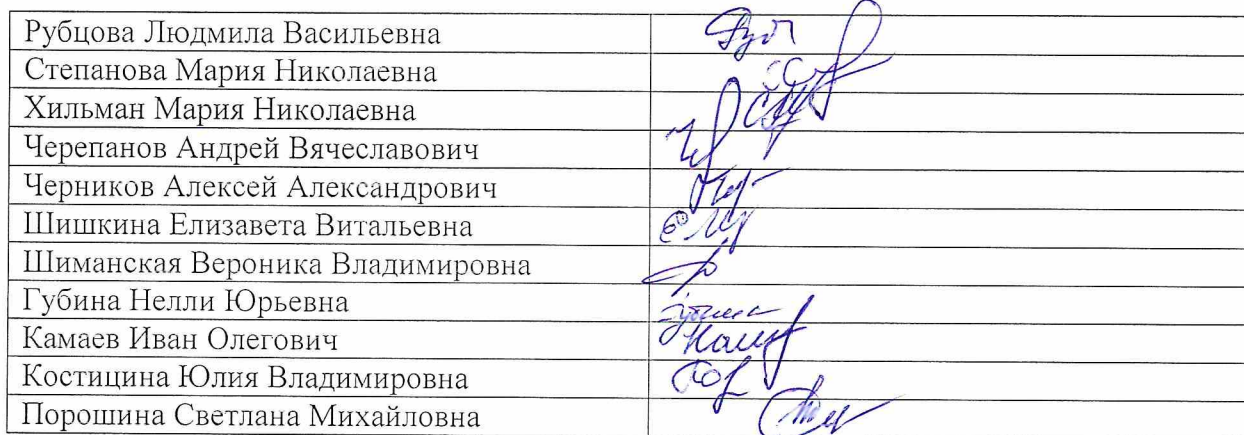 Рубцова Людмила Васильевна
Степанова Мария Николаевна
Хильман Мария Николаевна
Черепанов Андрей Вячеславович
Черников Алексей Александрович
Шишкина Елизавета Витальевна
Шиманская Вероника Владимировна
Губина Нелли Юрьевна
Камаев Иван Олегович
Костицина Юлия Владимировна
Порошина Светлана Михайловна